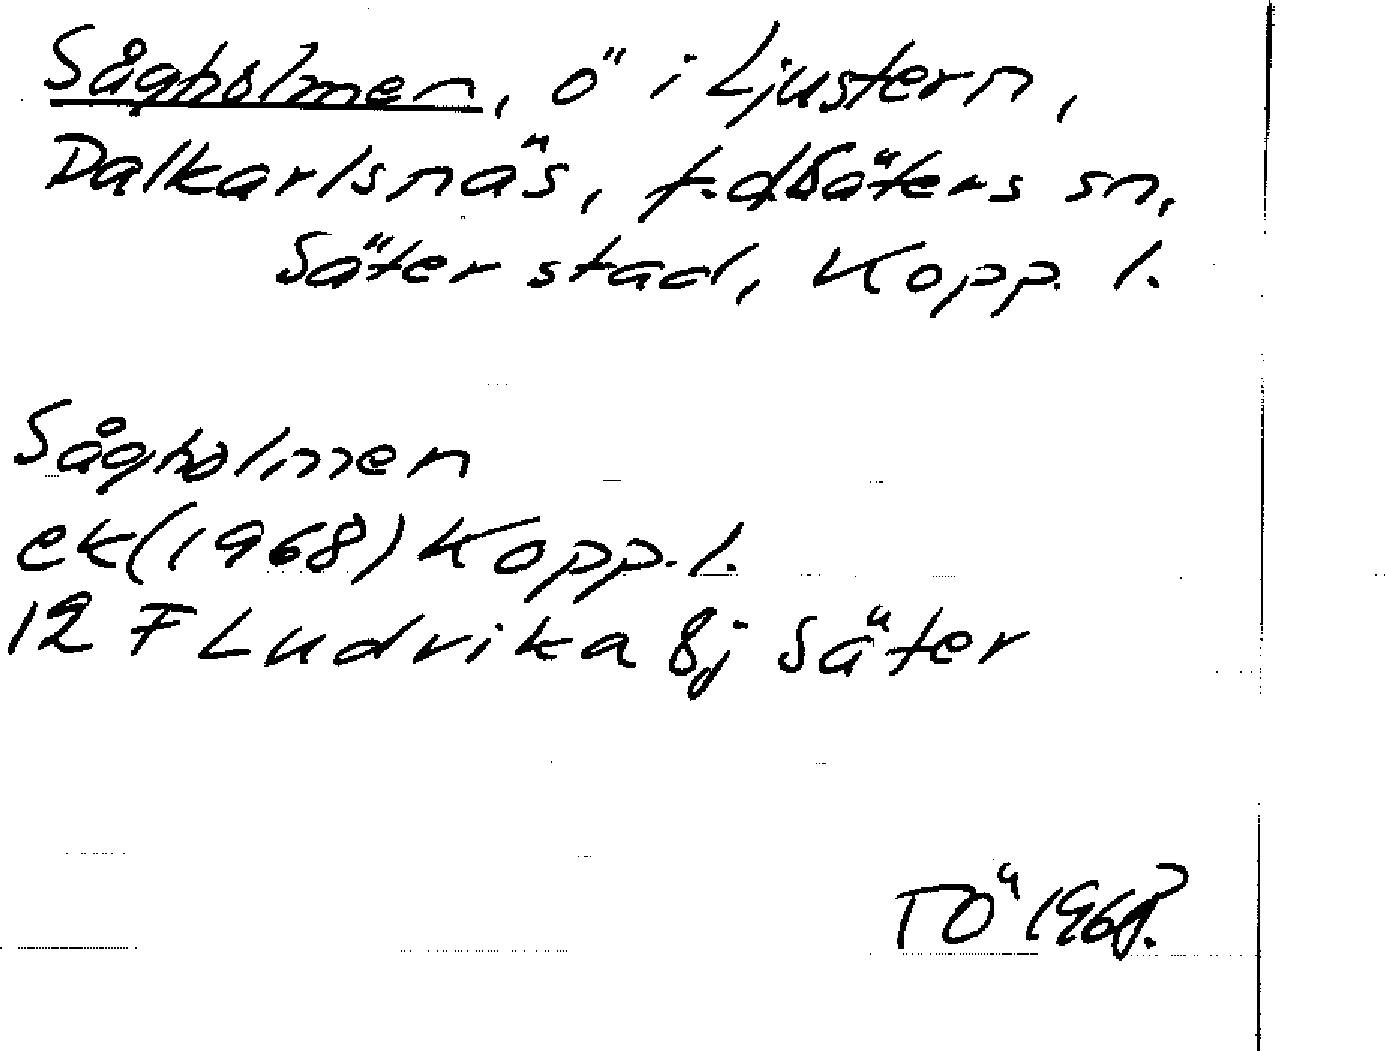 Sågholmen, ö i Ljustern,
Dalkarlsnäs, f.d. Säters sn,
Säter stad, Kopp. l.
Sågholmen
ek (1968) Kopp. l.
12 F Ludvika 8j Säter
TÖ 1968.